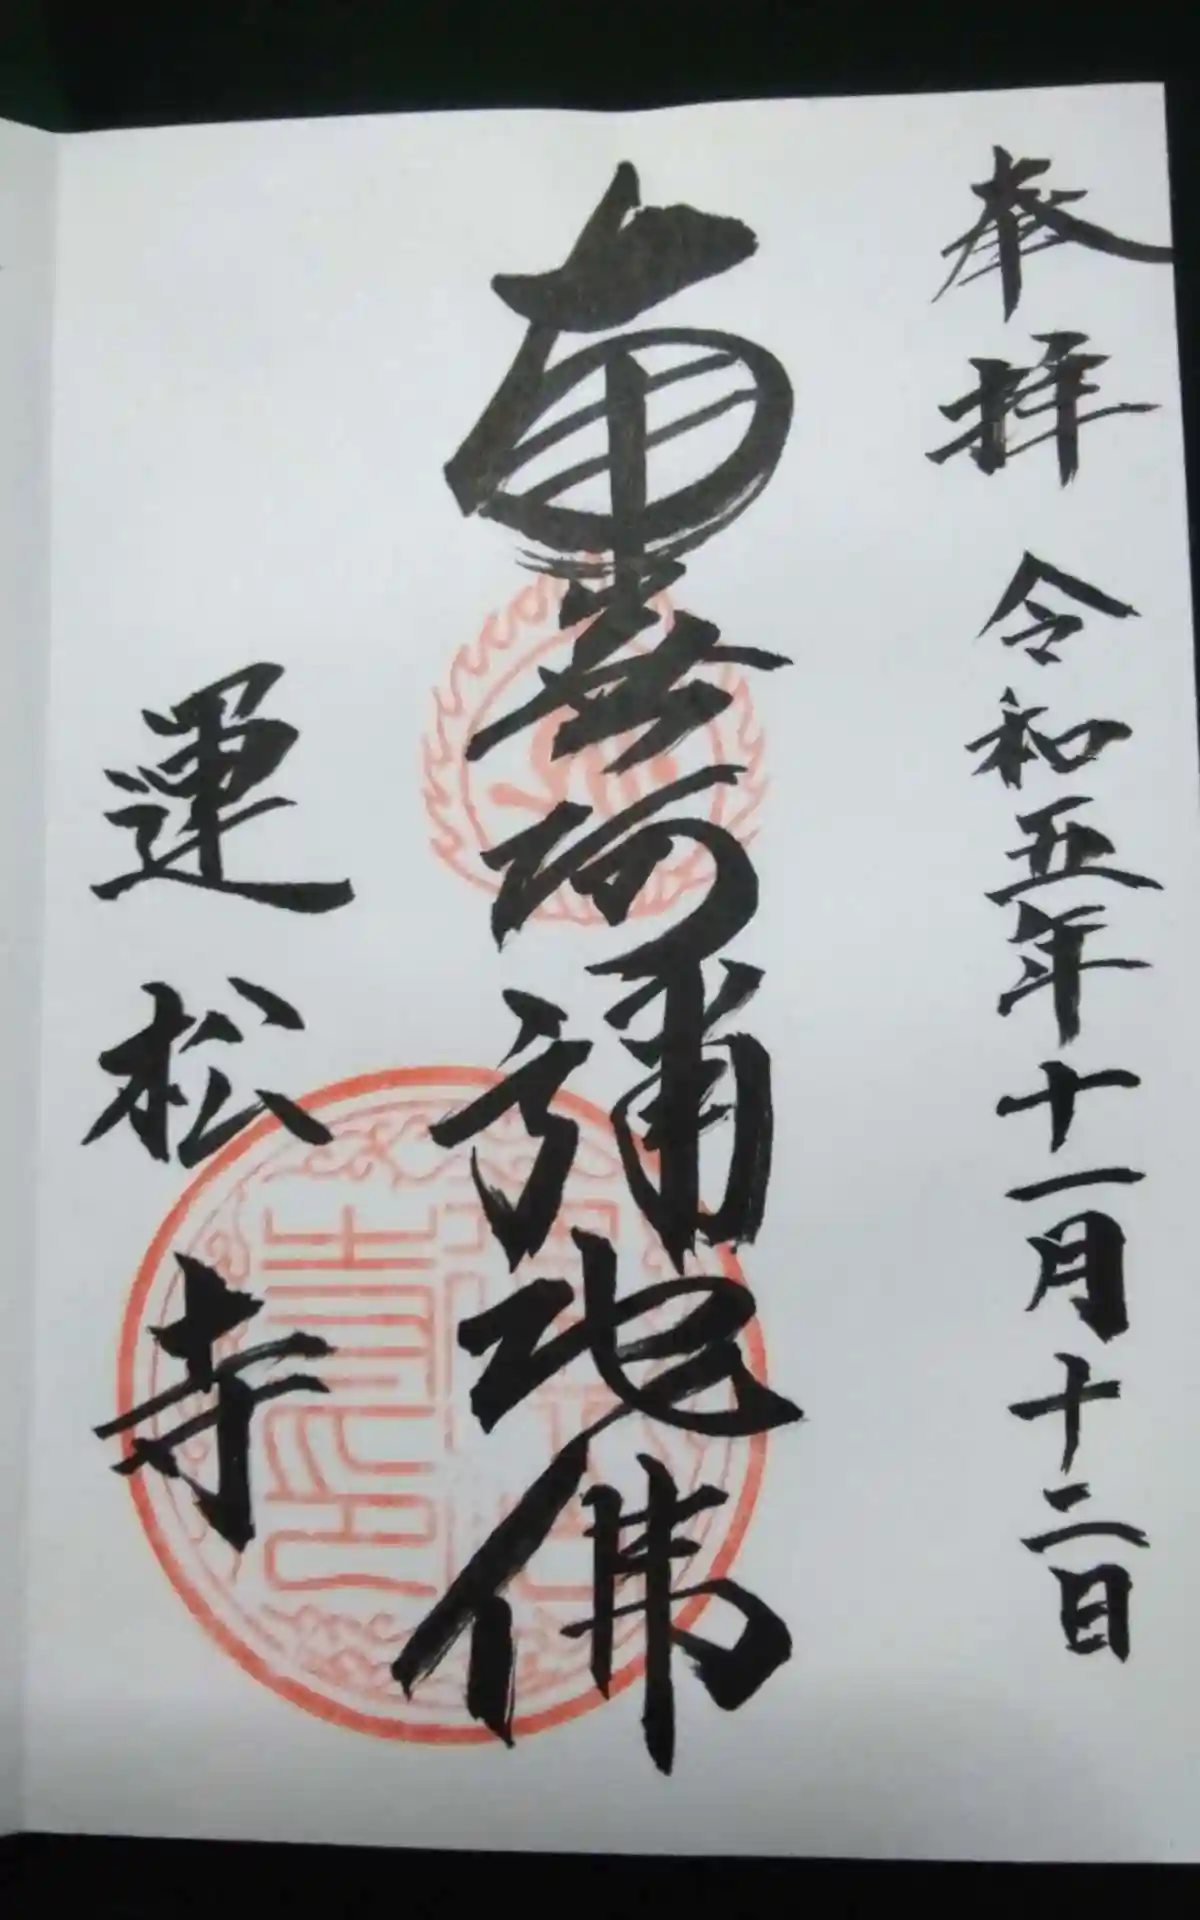 奉拝 令和五年十一月十二日
南無阿彌陀佛
運松寺